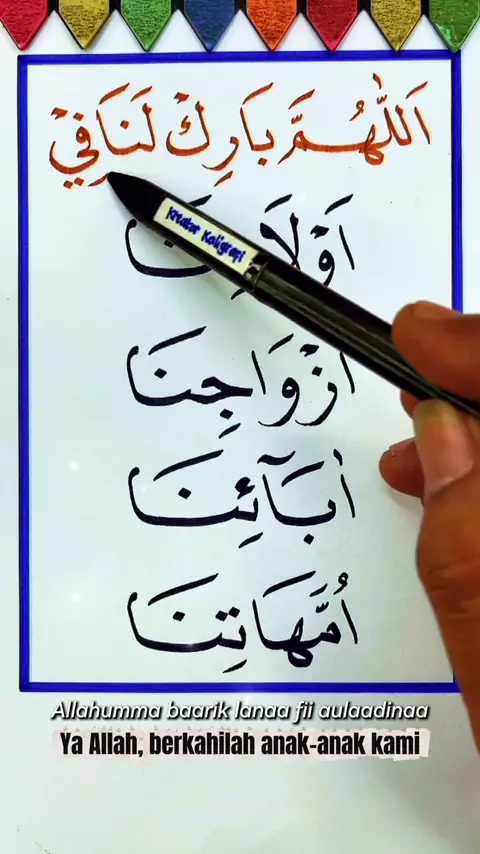 اَللّٰهُمَّ بَارِكْ لَنَا فِيْ
اَزْوَاجِنَا
اٰبَآئِنَا
اُمَّهَاتِنَا
Kreator Kaligrafi
Allahumma baarik lanaa fii aulaadinaa
Ya Allah, berkahilah anak-anak kami